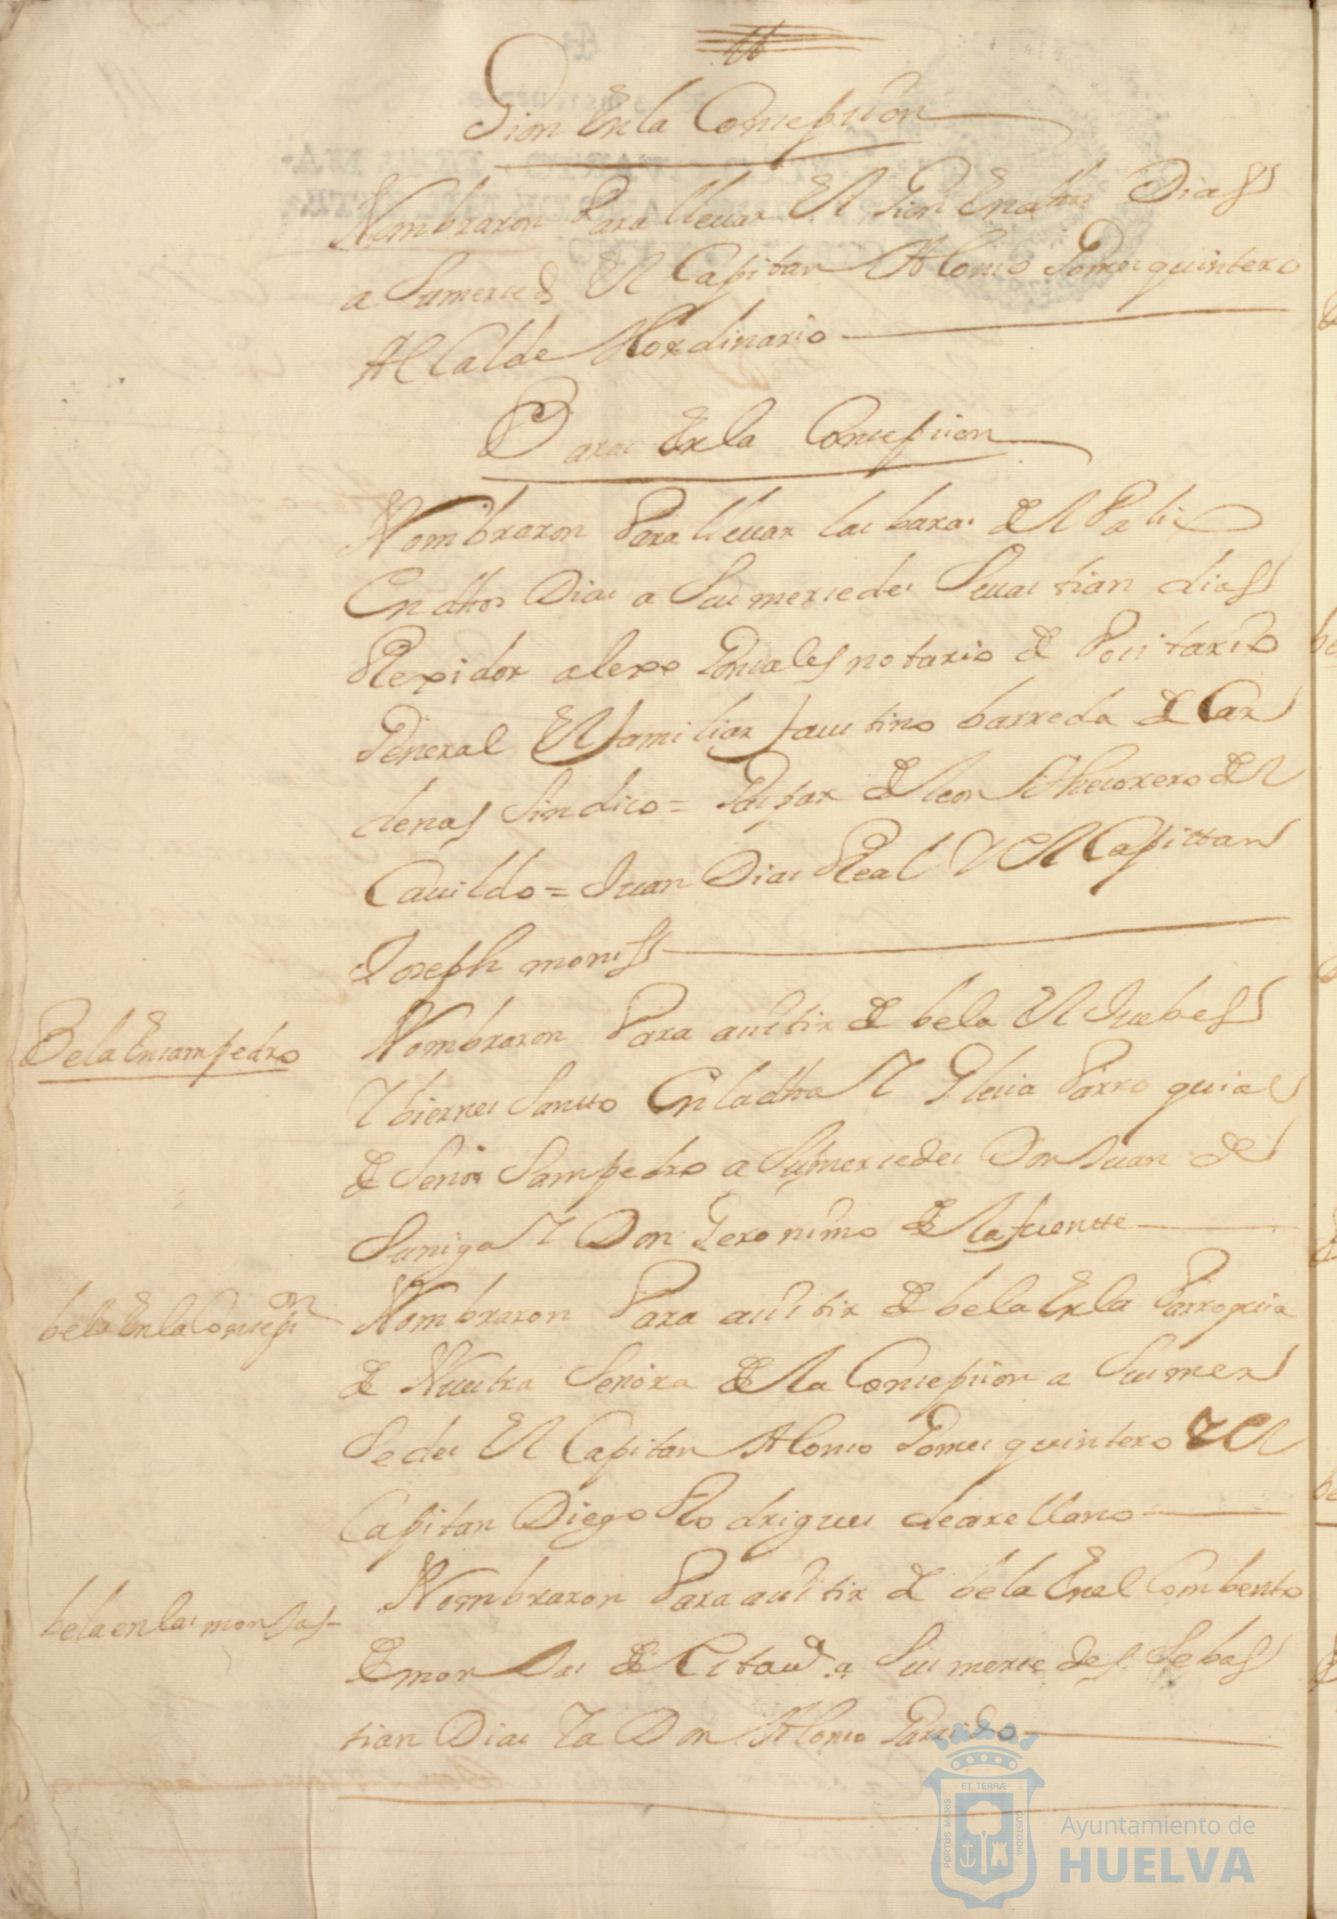 Gion En la Concepcion
Nombraron Para lleuar El Gion En dhos Dias
a Sumerced El Capitan Alonso Gomes quintero
Alcalde Hordinario
Baras En la Concepcion
Nombraron Para lleuar las baras del Palio
En dhos Dias a Sus mersedes Seuastian dias
Rexidor alexo Gonsales notario depocitario
General El familiar faustino barreda de Car
denas Sindico = Gaspar de leon thesorero del
Cauildo = Juan Dias Real Y El Capittan
Joseph monis
Bela En sampedro
Nombraron Para asistir de bela El Juebes
Y biernes Santto En la dha Yglecia Parroquial
de Señor Sampedro a Sus mersedes Don Juan de
Suniga Y Don Geronimo de la fuentte
bela En la Concepon
Nombraron Para asistir de bela En la Parroquia
de Nuestra Señora de la Concepcion a Sus mer
sedes El Capitan Alonso Gomes quintero Y El
Capitan Diego Rodrigues de arellano
bela en las monJas
Nombraron Para asistir de bela En el Combento
de monJas de Esta Va a Sus mersedes Sebas
tian Dias Y a Don Alonso Garrido
ET TERRÆ
PORTUS MARIS
CUSTODIA
Ayuntamiento de
HUELVA